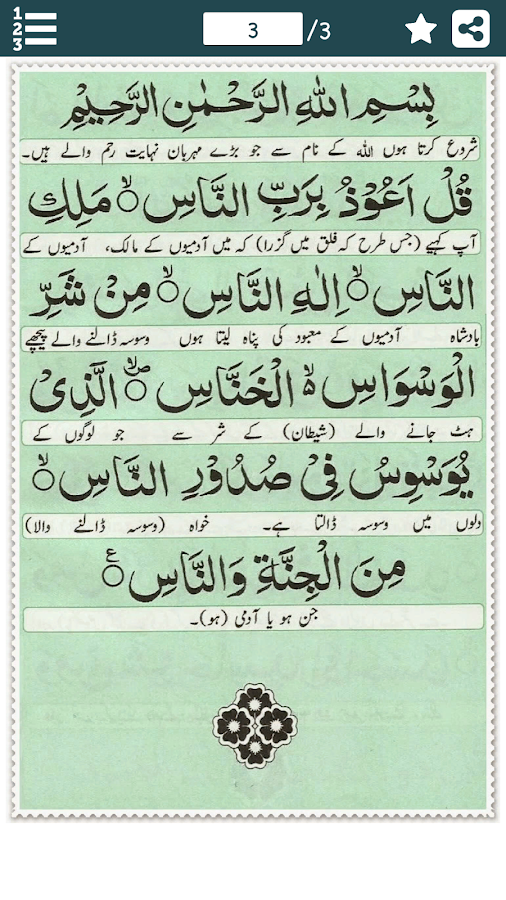 1
2
3
3 /3
بِسْمِ اللهِ الرَّحْمٰنِ الرَّحِيْمِ
شروع کرتا ہوں اللہ کے نام سے جو بڑے مہربان نہایت رحم والے ہیں۔
قُلْ اَعُوْذُ بِرَبِّ النَّاسِ ۙ مَلِكِ
آپ کہیے (جس طرح کہ فلق میں گزرا) کہ میں آدمیوں کے مالک، آدمیوں کے
النَّاسِ ۙ اِلٰهِ النَّاسِ ۙ مِنْ شَرِّ
بادشاہ آدمیوں کے معبود کی پناہ لیتا ہوں وسوسہ ڈالنے والے پیچھے
الْوَسْوَاسِ ۙ الْخَنَّاسِ ۪ۙ الَّذِیْ
ہٹ جانے والے (شیطان) کے شر سے جو لوگوں کے
یُوَسْوِسُ فِیْ صُدُوْرِ النَّاسِ ۙ
دلوں میں وسوسہ ڈالتا ہے۔ خواہ (وسوسہ ڈالنے والا)
مِنَ الْجِنَّةِ وَالنَّاسِ ۠
جن ہو یا آدمی (ہو)۔